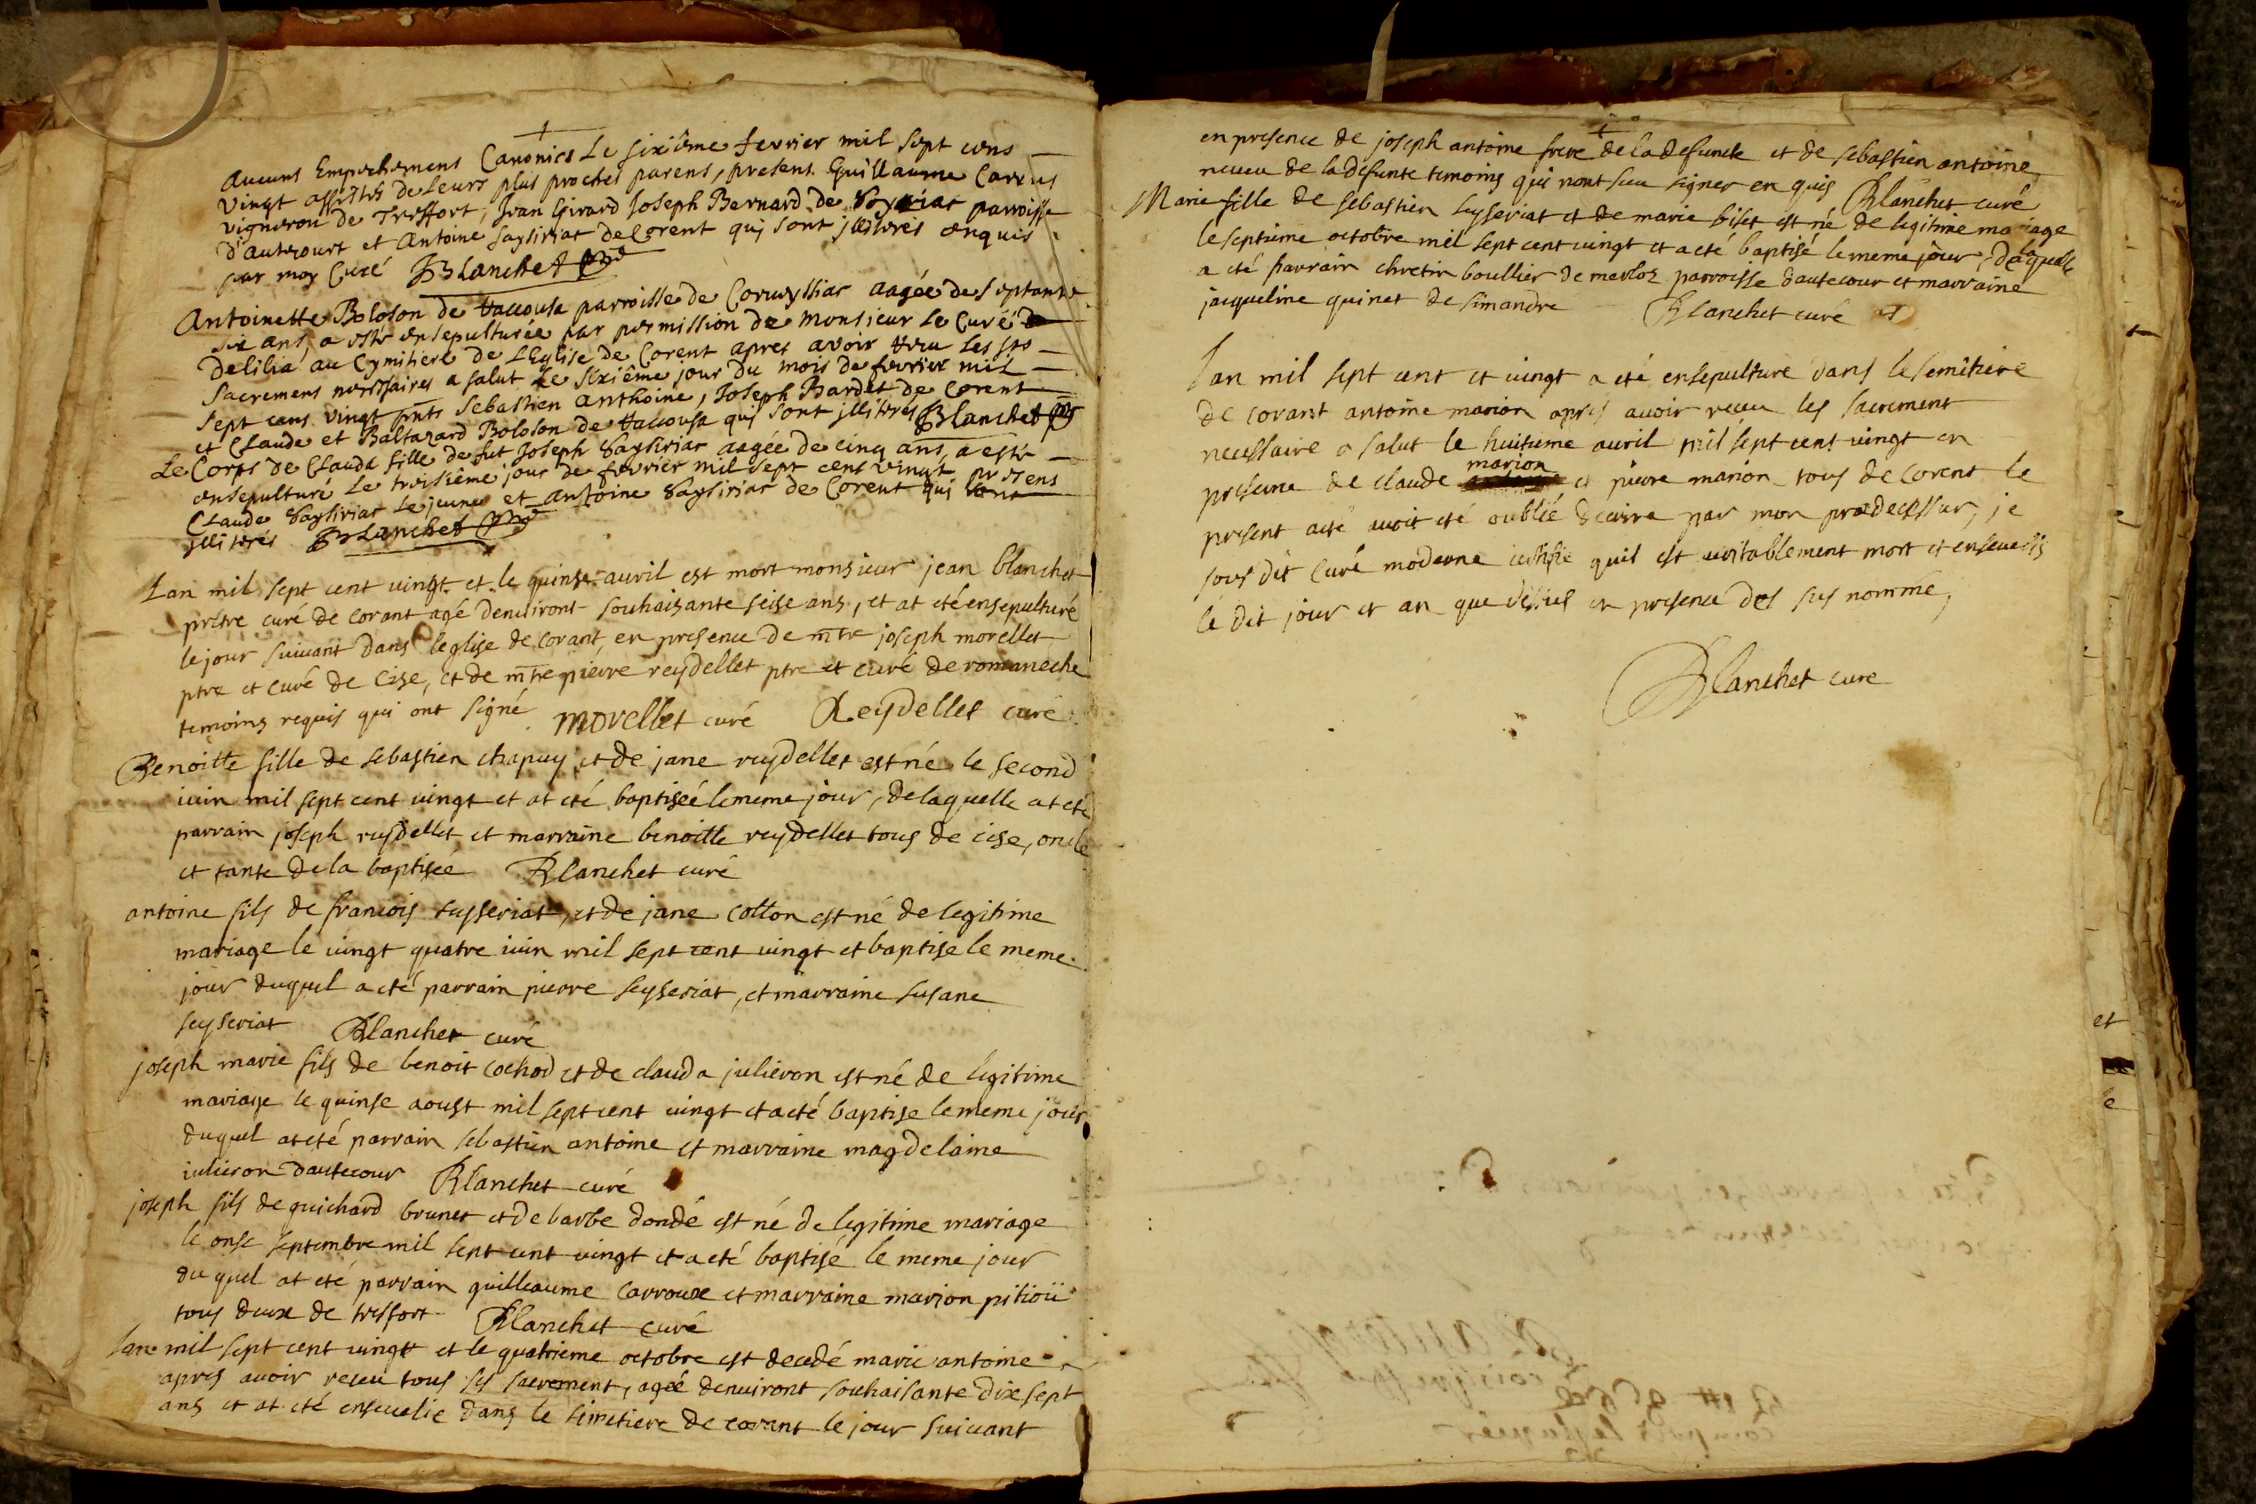 aucuns Empechemens Canonics Le sixiême fevrier mil sept cens
vingt assistés de leurs plus proches parens, presens Guillaume Carrus
vigneron de Treffort, Jean Girard Joseph Bernard de parroisse
d'autecourt et Antoine Saysiriat de Corent qui sont illiterés enquis
par moy Curé Blanchet
Antoinette Boloson de parroisse de aagée de septante
six ans, a esté ensepulturée par permission de Monsieur le Curé
Delilia au Cymitiere de L'Eglise de Corent apres avoir receu les
Sacremens nessaires a salut Le sixiême jour du mois de fevrier mil
sept cens vingt pnts Sebastien Anthoine, Joseph Bardet de Corent
et Claude et Baltazard Boloson de qui sont illiterés Blanchet
Le Corps de Clauda fille de fut Joseph Saysiriat aagée de cinq ans, a esté
ensepulturé Le troisiême jour de fevrier mil sept cens vingt presens
Claude Saysiriat Le jeune et Antoine Saysiriat de Corent qui sont
illiterés Blanchet
Lan mil sept cent vingt et le quinse avril est mort monsieur jean blanchet
prêtre curé de corant agé denviront souhaisante seise ans, et at eté ensepulturé
le jour suivant dans leglise de corant, en presence de mtre joseph morellet
ptre et curé de Cize, et de mtre pierre reydellet ptre et curé de romaneche
temoins requis qui ont signé morellet curé Reydellet curé
Benoitte fille de sebastien chapuy et de jane reydellet est né le second
iuin mil sept cent vingt et at eté baptiseé le meme jour, de laquelle at eté
parrain joseph reydellet et marraine benoitte reydellet tous de cise, oncle
et tante de la baptisée Blanchet curé
antoine fils de francois seyseriat, et de jane cotton est né de legitime
mariage le vingt quatre iuin mil sept cent vingt et baptise le meme
jour duquel a eté parrain pierre seyseriat, et marraine susane
seyseriat Blanchet curé
joseph marie fils de benoit cochod et de clauda julieron est né de legitime
mariage le quinse aoust mil sept cent vingt et a eté baptise le meme jour
duquel at eté parrain sebastien antoine et marraine magdelaine
iulieron dautecour Blanchet curé
joseph fils de guichard brunet et de barbe dondé est né de legitime mariage
le onse septembre mil sept cent vingt et a eté baptisé le meme jour
du quel at eté parrain guilleaume carroux et marraine marion pitioü
tous deux de treffort Blanchet curé
Lan mil sept cent vingt et le quatrieme octobre est decedé marie antoine
apres avoir receu tous ses sacrement, ageé denviront souhaisante dix sept
ans et at eté ensevelie dans le simetiere de corant le jour suivant
en presence de joseph antoine frere de la defuncte et de sebastien antoine
neveu de la defunte temoins qui nont seu signer en quis Blanchet curé
Marie fille de sebastien seyseriat et de marie biset est né de legitime mariage
le septieme octobre mil sept cent vingt et a eté baptisé le meme jour, de laquelle
a eté parrain chretin boullier de merloz parroisse dautecour et marraine
jacqueline quinet de simandre Blanchet curé
Lan mil sept cent et vingt a eté ensepulture dans le semitiere
de corant antoine marion apres avoir receu les sacrement
necessaire a salut le huitieme avril mil sept cens vingt en
presence de claude marion et pierre marion tous de corent le
present acte avoit eté oublié decrire par mon prædecessur, je
sous dit curé moderne certifie quil est veritablement mort et ensevelis
le dit jour et an que dessus en presence des sus nommé,
Blanchet cure
et
le